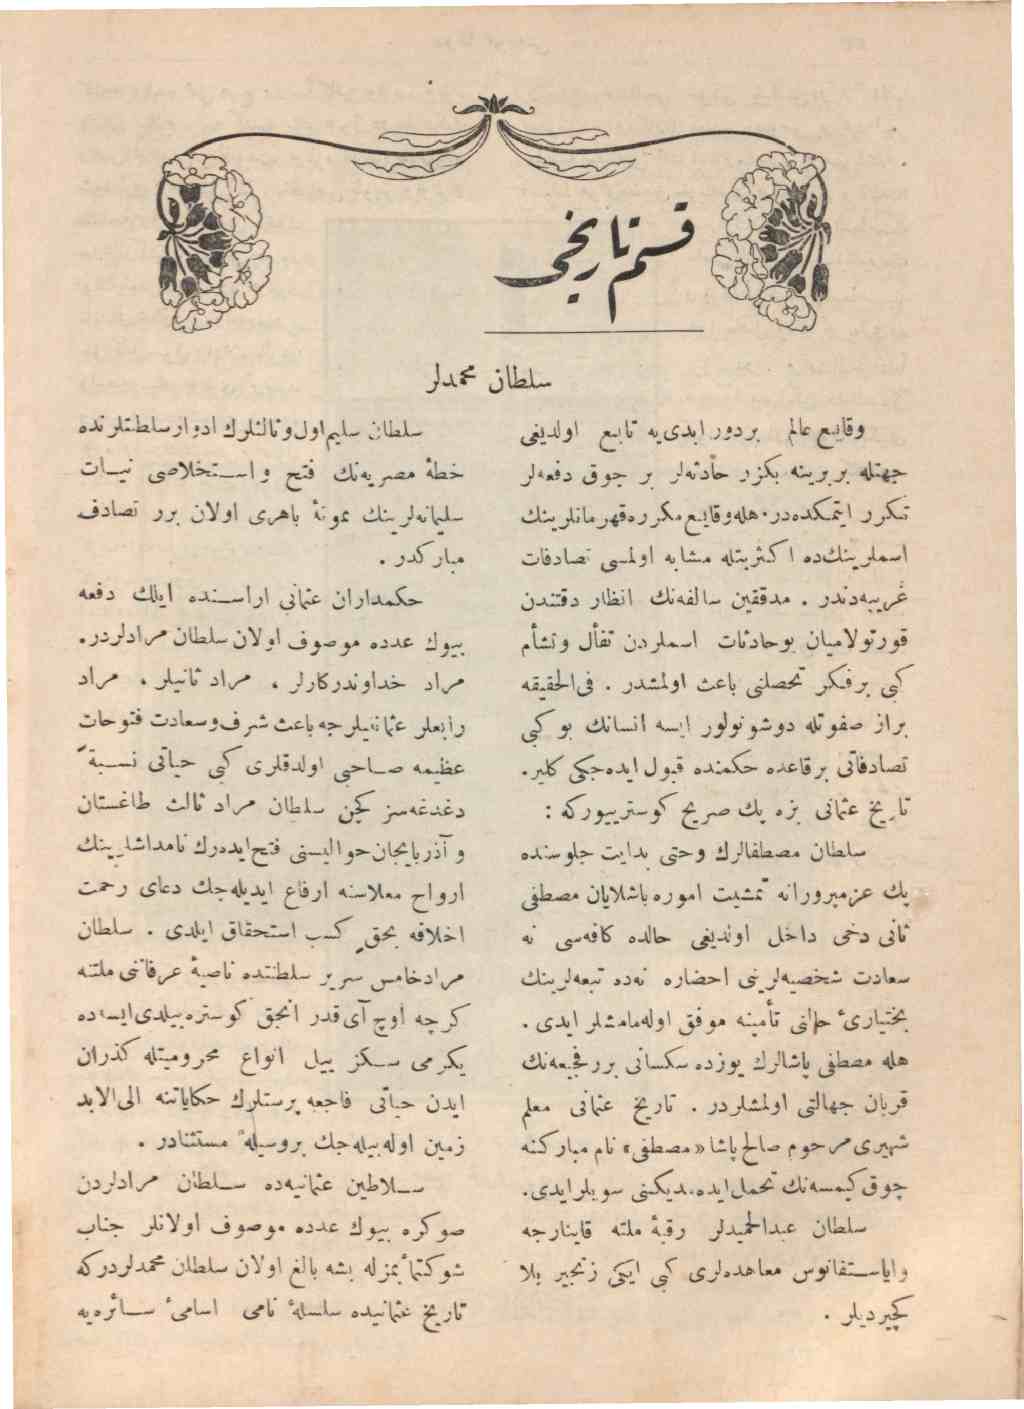 قسم تاریخی
سلطان محمدلر
وقایع عالم بردور ابدی‌یه تابع اولدیغی
جهتله بربرینه بکزر حادثه‌لر بر چوق دفعه‌لر
تکرر ایتمکده‌در. هله‌وقایع مکرره‌قهرمانلرینك
اسملرینك‌ده اکثریتله مشابه اولمسی تصادفات
غریبه‌دندر . مدققین سالفه‌نك انظار دقتندن
قورتولامیان بوحادثات اسملردن تفأل وتشأم
کبی برفکر تحصلنی باعث اولمشدر . فی‌الحقیقه
براز صفوتله دوشونولور ایسه انسانك بو کبی
تصادفاتی برقاعده حکمنده قبول ایده‌جکی کلیر.
تاریخ عثمانی بزه پك صریح کوستریبورکه :
سلطان مصطفالرك وحتی بدایت جلوسنده
پك عزمپرورانه تمشیت اموره باشلایان مصطفی
ثانی دخی داخل اولدیغی حالده کافه‌سی نه
سعادت شخصیه‌لرینی احضاره نه‌ده تبعه‌لرینك
بختیاریٔ حالنی تأمینه موفق اوله‌مامشلر ایدی.
هله مصطفی پاشالرك یوزده سکسانی بررفجیعه‌نك
قربان جهالتی اولمشلردر . تاریخ عثمانی معلم
شهیری مرحوم صالح پاشا «مصطفی» نام مبارکنه
چوق کیمسه‌نك تحمل ایده‌مدیکنی سویلرایدی.
سلطان عبدالحمیدلر رقبهٔ ملته قاینارجه
وایاستفانوس معاهده‌لری کبی ایکی زنجیر بلا
کچیردیلر .
سلطان سلیم‌اول‌وثالثلرك ادوارسلطنتلرنده
خطهٔ مصریه‌نك فتح و استخلاصی نیات
سلیمانه‌لرینك نمونهٔ باهری اولان برر تصادف
مبارکدر .
حکمداران عثمانی اراسنده ایلك دفعه
بیوك عدده موصوف اولان سلطان مرادلردر.
مراد خداوندرکارلر ، مراد ثانیلر ، مراد
رابعلر عثمانلیلرجه باعث شرف‌وسعادت فتوحات
عظیمه صاحبی اولدقلری کبی حیاتی نسبةً
دغدغه‌سز کچن سلطان مراد ثالث طاغستان
و آذربایجان‌حوالیسنی فتح‌ایده‌رك نامداشلرینك
ارواح معلاسنه ارفاع ایدیله‌جك دعای رحمت
اخلافه بحقٍ کسب استحقاق ایلدی . سلطان
مرادخامس سریر سلطنتده ناصیهٔ عرفاننی ملتنه
کرچه اوچ آی‌قدر انجق کوستره‌بیلدی‌ایسه‌ده
یکرمی سکز ییل انواع محرومیتله گذران
ایدن حیاتی فاجعه پرستلرك حکایاتنه الی‌الابد
زمین اوله‌بیله‌جك بروسیلهٔ مستثنادر .
سلاطین عثمانیه‌ده سلطان مرادلردن
صوکره بیوك عدده موصوف اولانلر جناب
شوکتمآبمزله بشه بالغ اولان سلطان محمدلردرکه
تاریخ عثمانیده سلسلهٔ نامی اسامیٔ سائره‌یه